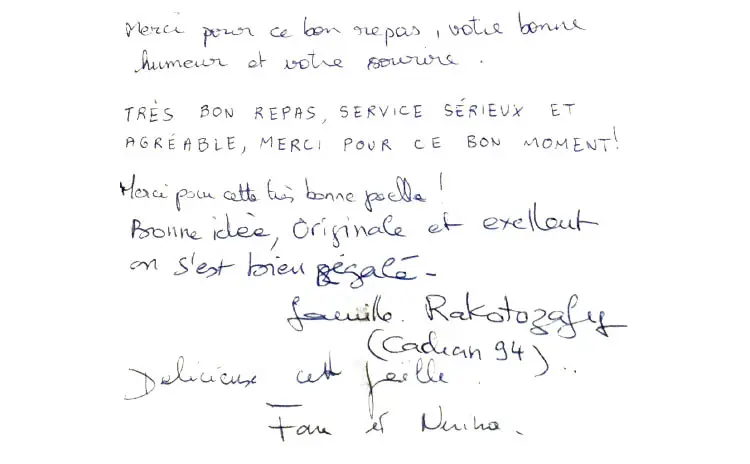 Merci pour ce bon repas, votre bonne
humeur et votre sourire.
TRÈS BON REPAS, SERVICE SÉRIEUX ET
AGRÉABLE, MERCI POUR CE BON MOMENT!
Merci pour cette très bonne paella!
Bonne idée, Originale et exellent
on s'est bien régalé-
famille. Rakotozafy
(Cachan 94)..
Delicieux cette
et